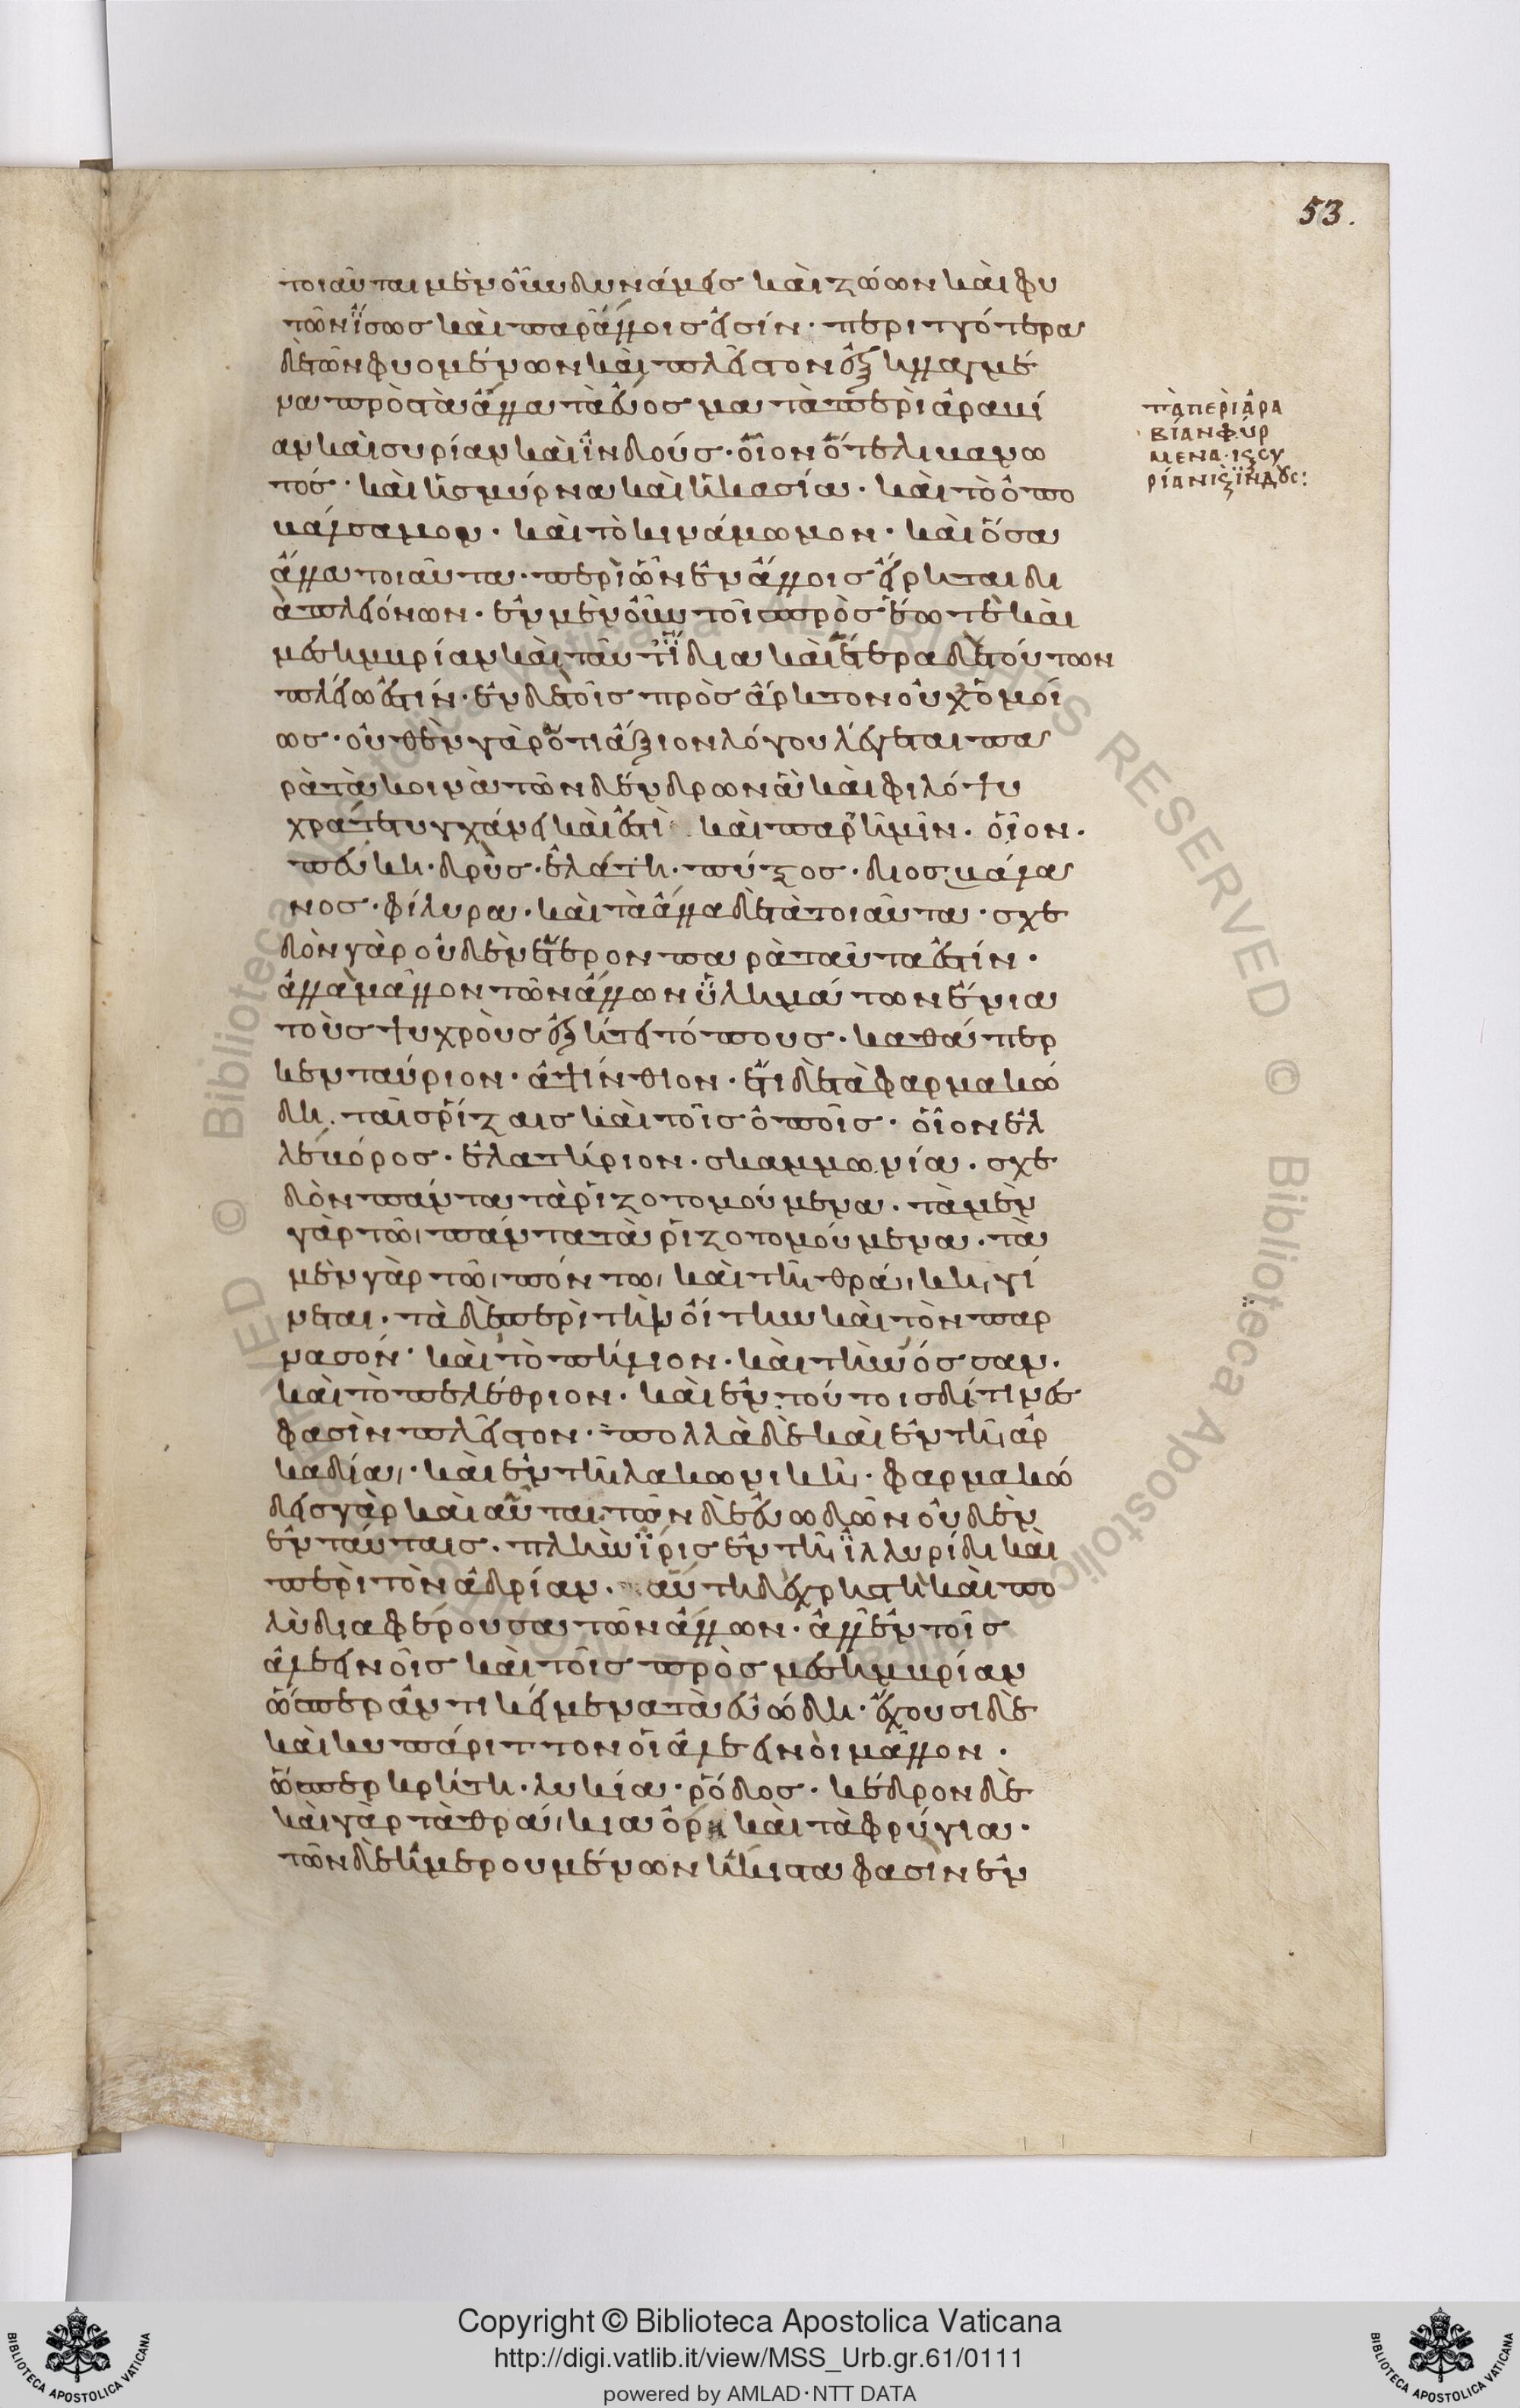 53.
τοιαῦται μὲν οὖν δυνάμεις καὶ ζώων καὶ φυ
τῶν ἴσως καὶ παρ' ἄλλοις εἰσίν· περιττότερα
δὲ τῶν φυομένων καὶ πλεῖστον ἐξηλλαγμέ
να πρὸς τὰ ἄλλα τὰ εὔοσμα τὰ περὶ ἀραβί
αν καὶ συρίαν καὶ ἰνδούς· οἷον ὅ τε λιβανω
τός· καὶ ἡ σμύρνα καὶ ἡ κασία· καὶ τὸ ὀπο
βάλσαμον· καὶ τὸ κινάμωμον· καὶ ὅσα
ἄλλα τοιαῦτα· περὶ ὧν ἐν ἄλλοις εἴρηται δι
ὰ πλειόνων· ἐν μὲν οὖν τοῖς πρὸς ἕω τε καὶ
μεσημβρίαν καὶ ταῦτ' ἴδια καὶ ἕτερα δὲ τούτων
πλείω ἐστίν· ἐν δὲ τοῖς πρὸς ἄρκτον οὐχ ὁμοί
ως· οὐθὲν γὰρ ὅτι ἄξιον λόγου λέγεται πα
ρὰ τὰ κοινὰ τῶν δένδρων ἃ καὶ φιλόψυ
χρά τε τυγχάνει καὶ ἐστὶ καὶ παρ' ἡμῖν· οἷον·
πεύκη· δρῦς· ἐλάτη· πύξος· διοσβάλα
νος· φίλυρα· καὶ τὰ ἄλλα δὲ τὰ τοιαῦτα· σχε
δὸν γὰρ οὐδὲν ἕτερον παρὰ ταῦτα ἐστίν·
ἀλλὰ μᾶλλον τῶν ἄλλων ὑλημάτων ἔνια
τοὺς ψυχροὺς ἐξήτει τόπους· καθάπερ
κενταύριον· ἀψίνθιον· ἔτι δὲ τὰ φαρμακώ
δη ταῖς ῥίζαις καὶ τοῖς ὀποῖς· οἷον ἐλ
λέβορος· ἐλατήριον· σκαμμωνία· σχε
δὸν πάντα τὰ ῥιζοτομούμενα· τὰ μὲν
γὰρ τῶι πάντα τὰ ῥιζοτομούμενα· τὰ
μὲν γὰρ τῶι πόντωι καὶ τῆ θράικηι γί
νεται· τὰ δὲ περὶ τὴν οἴτην καὶ τὸν παρ
νασόν· καὶ τὸ πήλιον· καὶ τὴν ὄσσαν·
καὶ τὸ πελέθριον· καὶ ἐν τούτοις δέ τινές
φασὶν πλεῖστον· πολλὰ δὲ καὶ ἐν τῆι ἀρ
καδίαι· καὶ ἐν τῆ λακωνικῆ· φαρμακώ
δεις γὰρ καὶ αὗται· τῶν δὲ εὐωδῶν οὐδὲν
ἐν ταύταις· πλὴν ἴρις ἐν τῆ ἰλλυρίδι καὶ
περὶ τὸν ἀδρίαν· αὕτη δὲ χρηστὴ καὶ πο
λὺ διαφέρουσα τῶν ἄλλων· ἀλλ' ἐν τοῖς
ἀλεεινοῖς καὶ τοῖς πρὸς μεσημβρίαν
ὥσπερ ἀντικείμενα τὰ εὐώδη· ἔχουσι δὲ
καὶ κυπάριττον οἱ ἀλεεινοὶ μᾶλλον·
ὥσπερ κρήτη· λυκία· ῥόδος· κέδρον δὲ
καὶ γὰρ τὰ θράικια ὄρη καὶ τὰ φρύγια·
τῶν δὲ ἡμερουμένων ἥκιστα φασὶν ἐν
τὰ περὶ ἀρα
βίαν φυό
μενα· κ(αὶ) συ
ρίαν κ(αὶ) ἰνδούς:
Copyright © Biblioteca Apostolica Vaticana
http://digi.vatlib.it/view/MSS_Urb.gr.61/0111
powered by AMLAD·NTT DATA